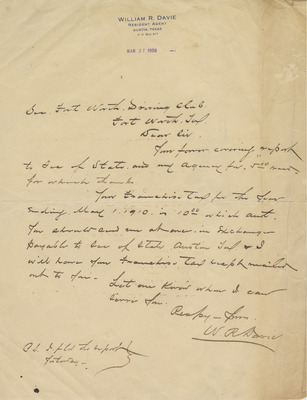 WILLIAM R. DAVIE
RESIDENT AGENT
AUSTIN, TEXAS
MAR 27 1909
Sec. Fort Worth Driving Club
Fort Worth, Tex
Dear Sir.
Your favor covering report
to Sec of State, and my Agency fee, 5.00 recd
for which thanks
Your Franchise Tax for the Year
Ending May 1. 1910. is 10.00 which amt.
You should send me at once in Exchange
payable to Sec of State Austin Tex & I
will have your Franchise Tax recpt mailed
out to you.
Let me know when I can
serve you.
Respy yours
W R Davie
P.S. I filed the report